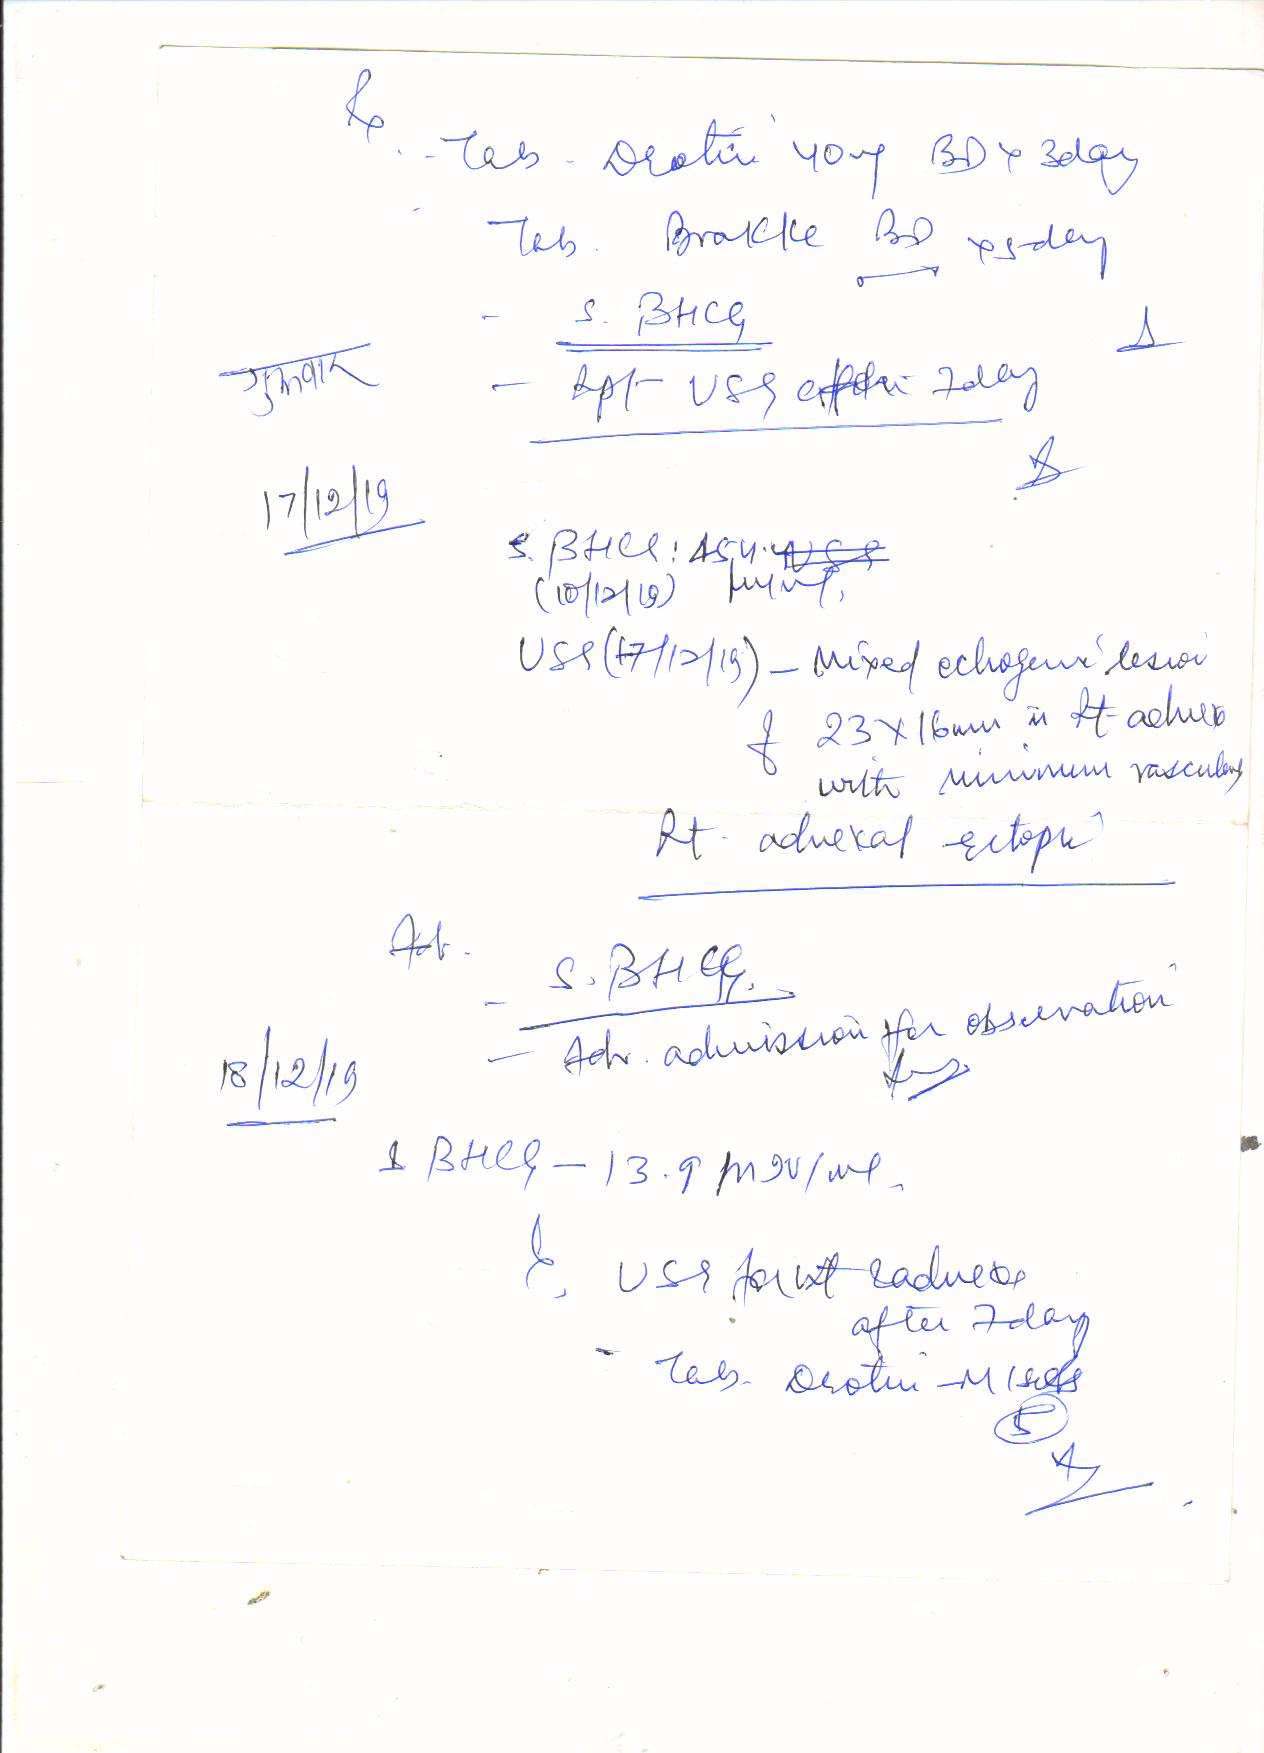 Rx
- Tab. Drotin 40mg BD x 3day
Tab. Brakke BD x 5day
- S. BHCG
- Rpt USG after 7day
17/12/19
S. BHCG: 454.4
(10/12/19) mIU/ml.
USG (17/12/19) - Mixed echogenic lesion
of 23 x 16mm in Rt adnexa
with minimum vascularity
Rt. adnexal ectopic
Adv.
- S. BHCG.
- Adv. admission for observation
18/12/19
S BHCG - 13.9 mIU/ml.
USG for adnexa
after 7day
- Tab. Drotin-M
5